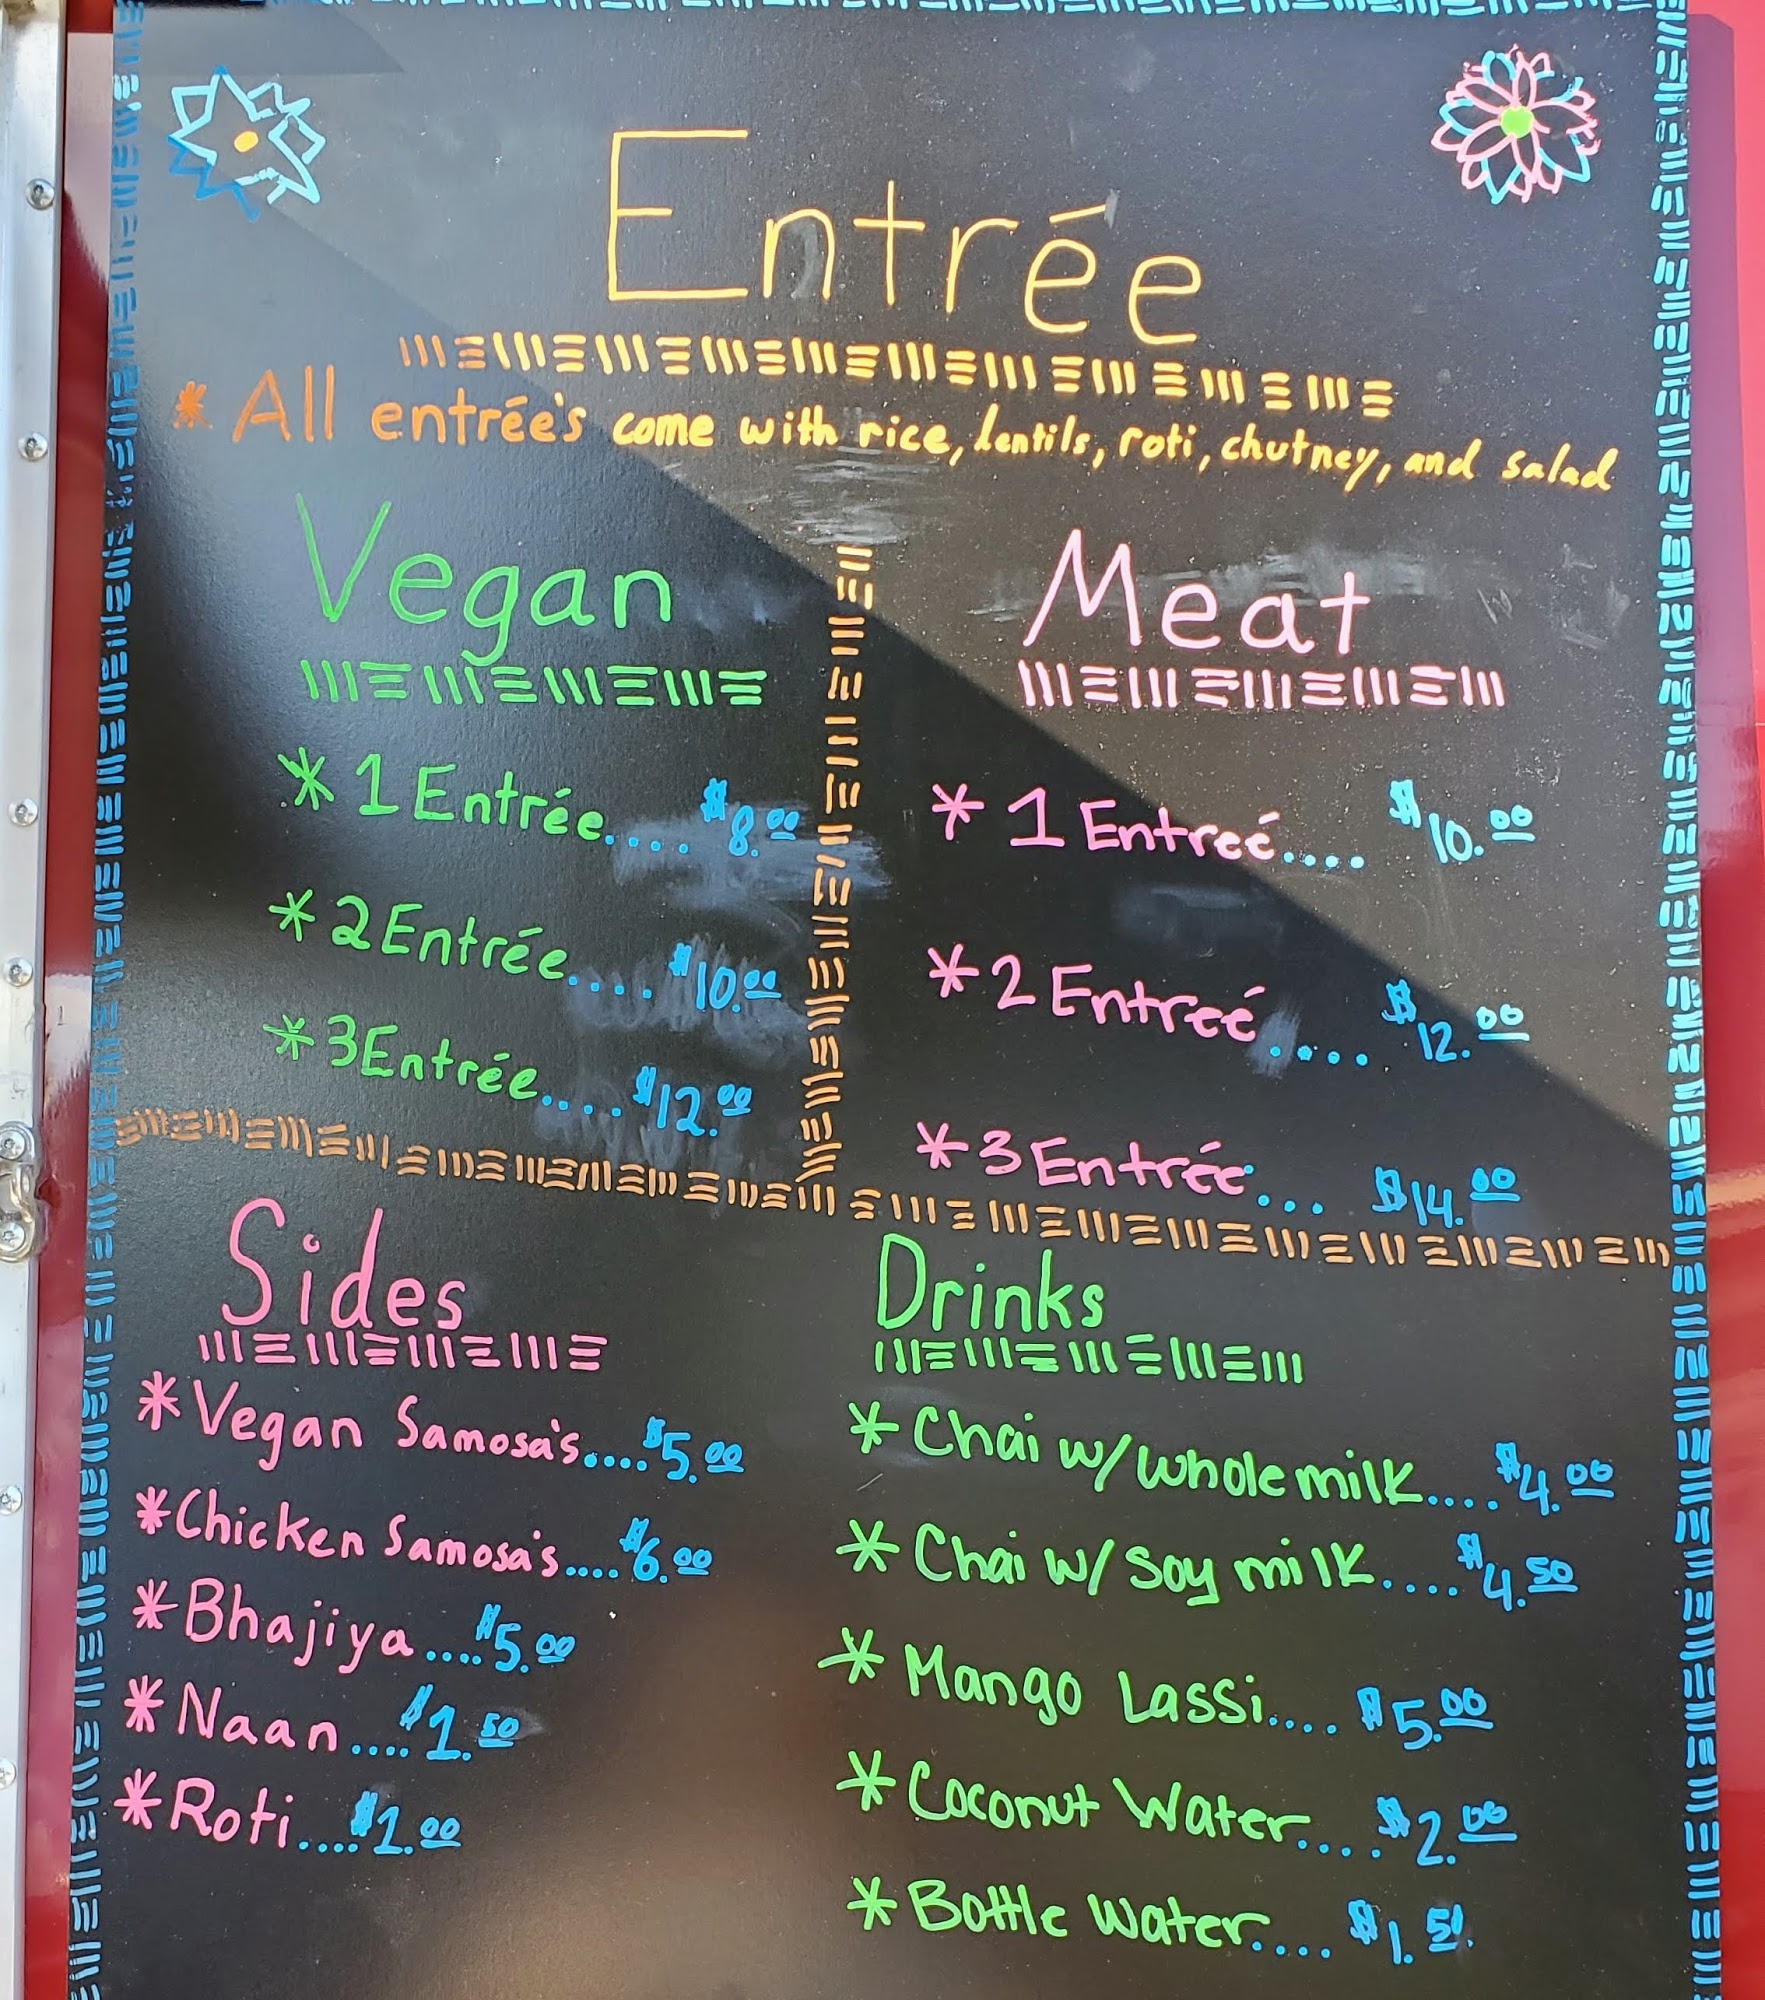 Entrée
* All entrée's come with rice, lentils, roti, chutney, and salad
Vegan
* 1 Entrée.... $8.00
* 2 Entrée.... $10.00
* 3 Entrée.... $12.00
Meat
* 1 Entreé.... $10.00
* 2 Entreé.... $12.00
* 3 Entrée... $14.00
Sides
* Vegan Samosa's.... $5.00
* Chicken Samosa's.... $6.00
* Bhajiya.... $5.00
* Naan.... $1.50
* Roti.... $1.00
Drinks
* Chai w/ whole milk.... $4.00
* Chai w/ soy milk.... $4.50
* Mango Lassi.... $5.00
* Coconut Water.... $2.00
* Bottle Water.... $1.50